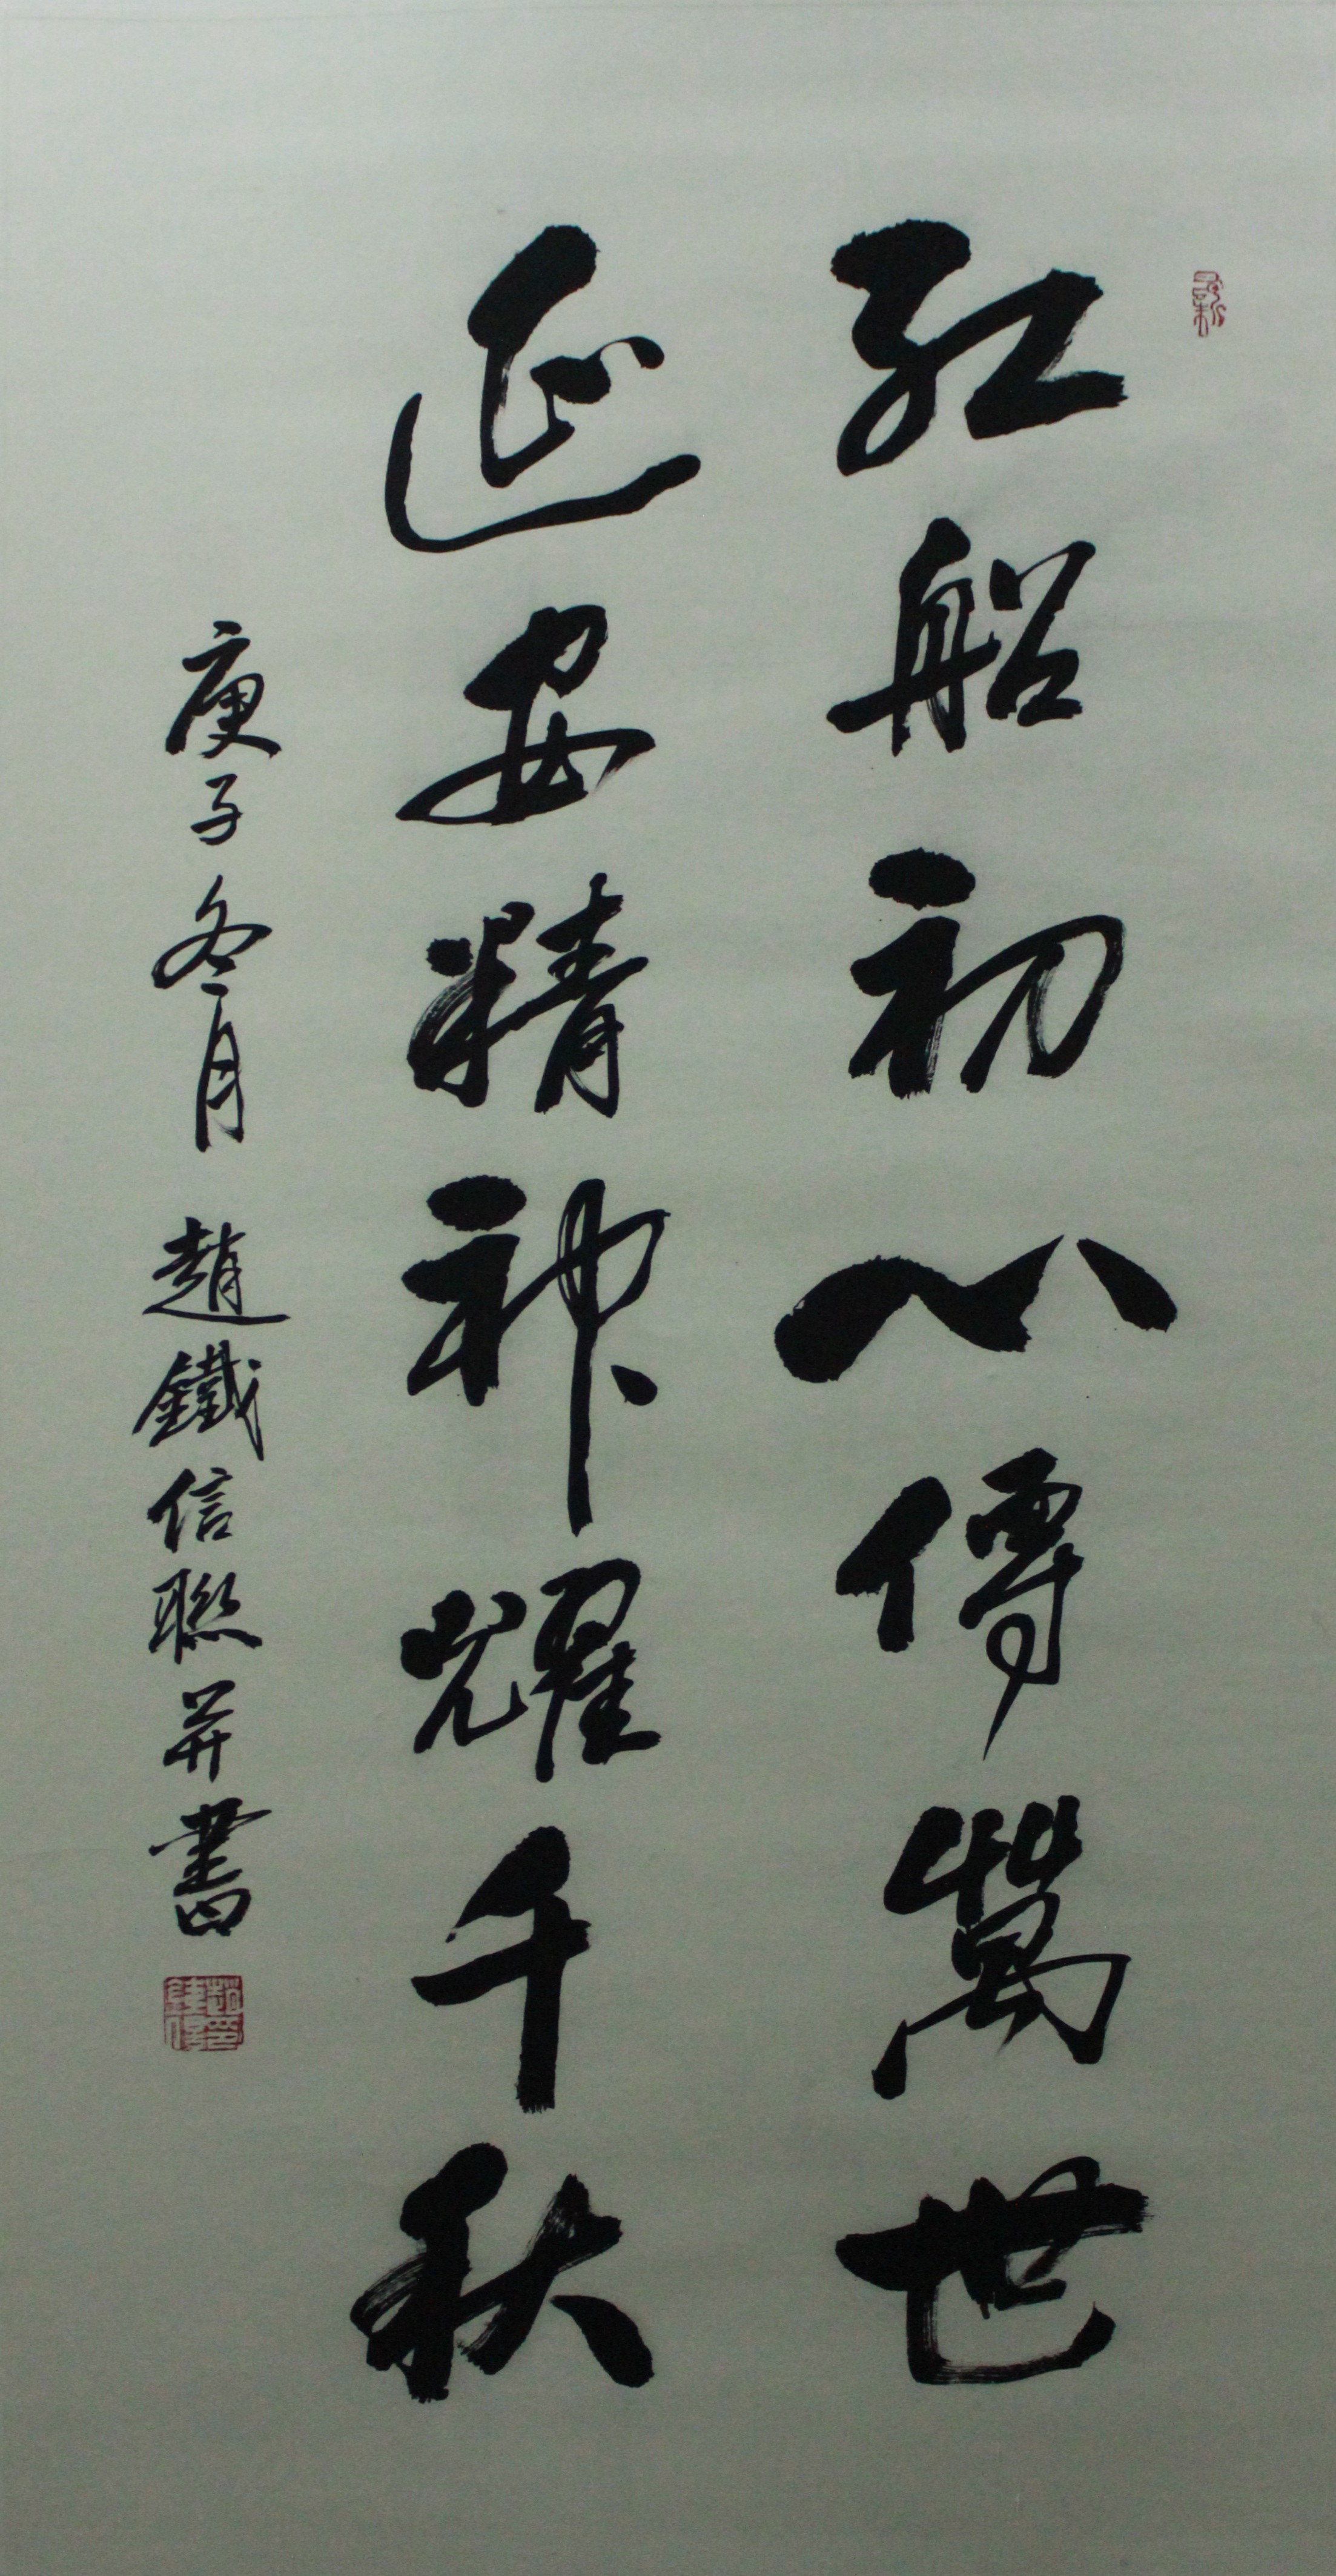 紅船初心傳萬世
延安精神耀千秋
庚子冬月 趙鐵信聯并書
趙鐵信印